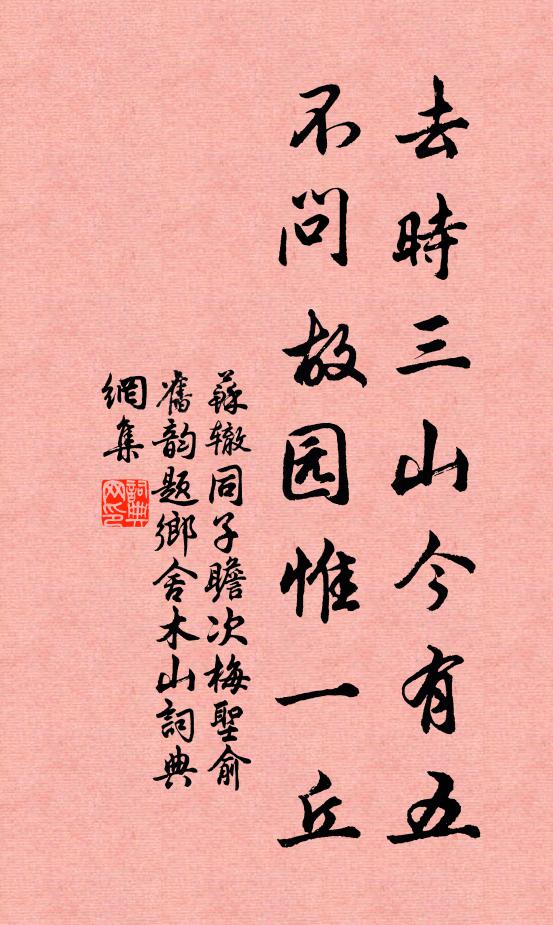 去時三山今有五
不問故园惟一丘
蘇辙同子瞻次梅聖俞
舊韵题鄉舍木山詞典
網集
詞典
网印